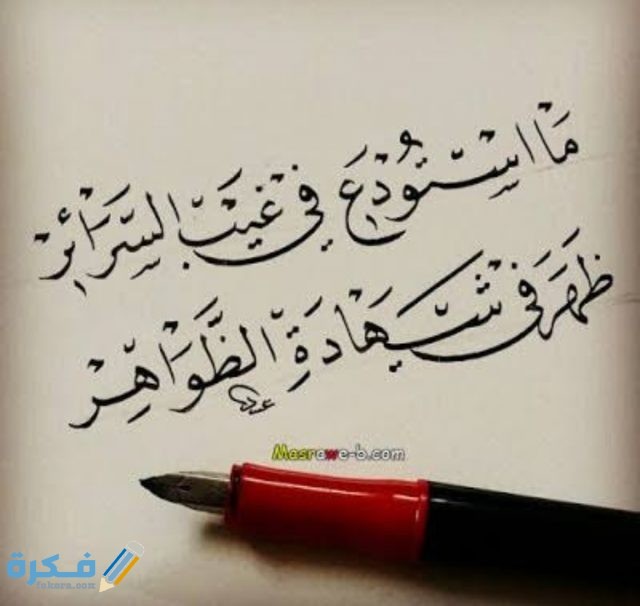 مَا اسْتُودِعَ فِي غَيْبِ السَّرَائِرِ
ظَهَرَ فِي شَهَادَةِ الظَّوَاهِرِ
Masrawe-b.com
فكرة
fekera.com